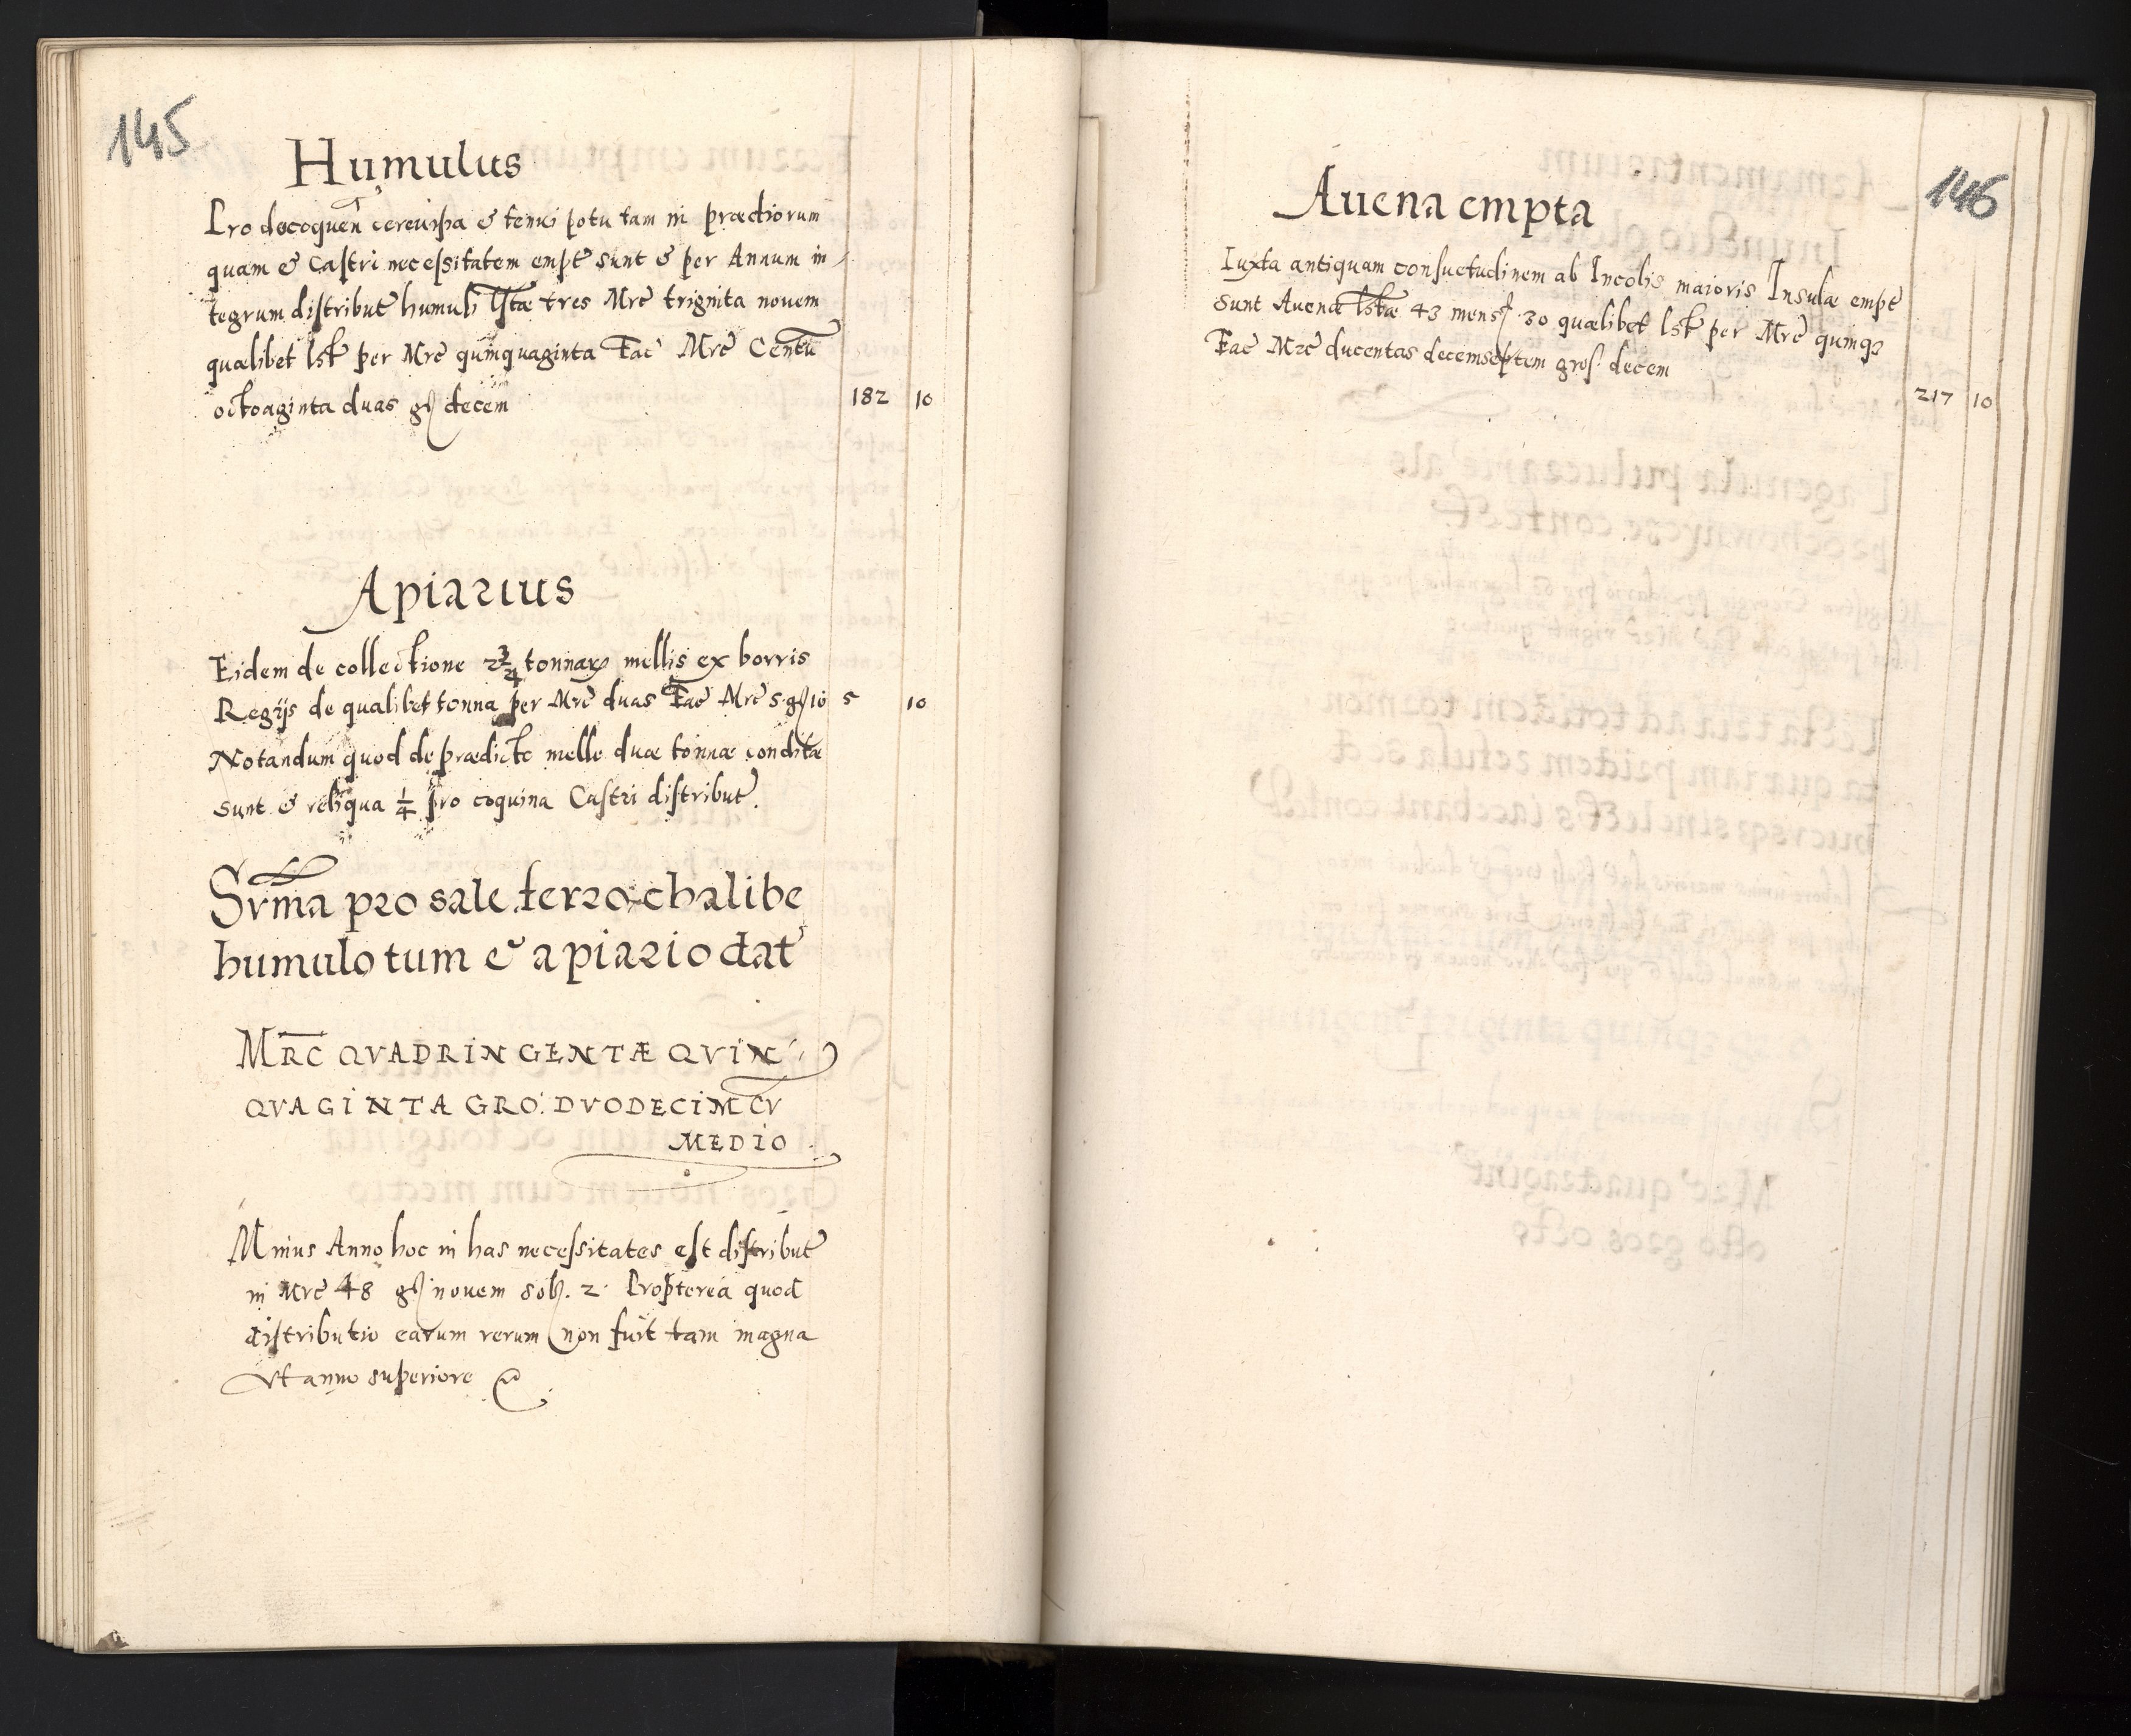 145
Humulus
Pro decoquen̄ cereuisia & tenui potu tam in prædiorum
quam & Castri necessitatem empt̃ sunt & per Annum in
tegrum distribut̃ humuli lstæ tres Mrc̃ triginta novem
quælibet lst̃ per Mrc̃ quinquaginta Fac̃ Mrc̃ Centū
octoaginta duas gſ decem 182 10
Apiarius
Eidem de collectione 2 3/4 tonnaꝝ mellis ex borris
Regijs de qualibet tonna per Mrc̃ duas Fac̃ Mrc̃ 5 gſ 10 5 10
Notandum quod de prædicto melle duæ tonnæ conditæ
sunt & reliqua 1/4 pro coquina Castri distribut̃.
Sum̄a pro sale ferro chalibe
humulo tum & apiario dat̃
MRC̄ QVADRINGENTÆ QVIN
QVAGINTA GRO: DVODECIM CV̄
MEDIO
Minus Anno hoc in has necessitates est distribut̃
in Mrc̃ 48 gſ novem sol. 2. Propterea quod
distributio earum rerum non fuit tam magna
Vt anno superiore
146
Auena empta
Iuxta antiquam consuetudinem ab Incolis maioris Insulæ empt̃
sunt Auenæ lstæ 43 mensſ 30 quælibet lst̃ per Mrc̃ quinqꝫ
Fac̃ Mrc̃ ducentas decemseptem gros. decem
217 10